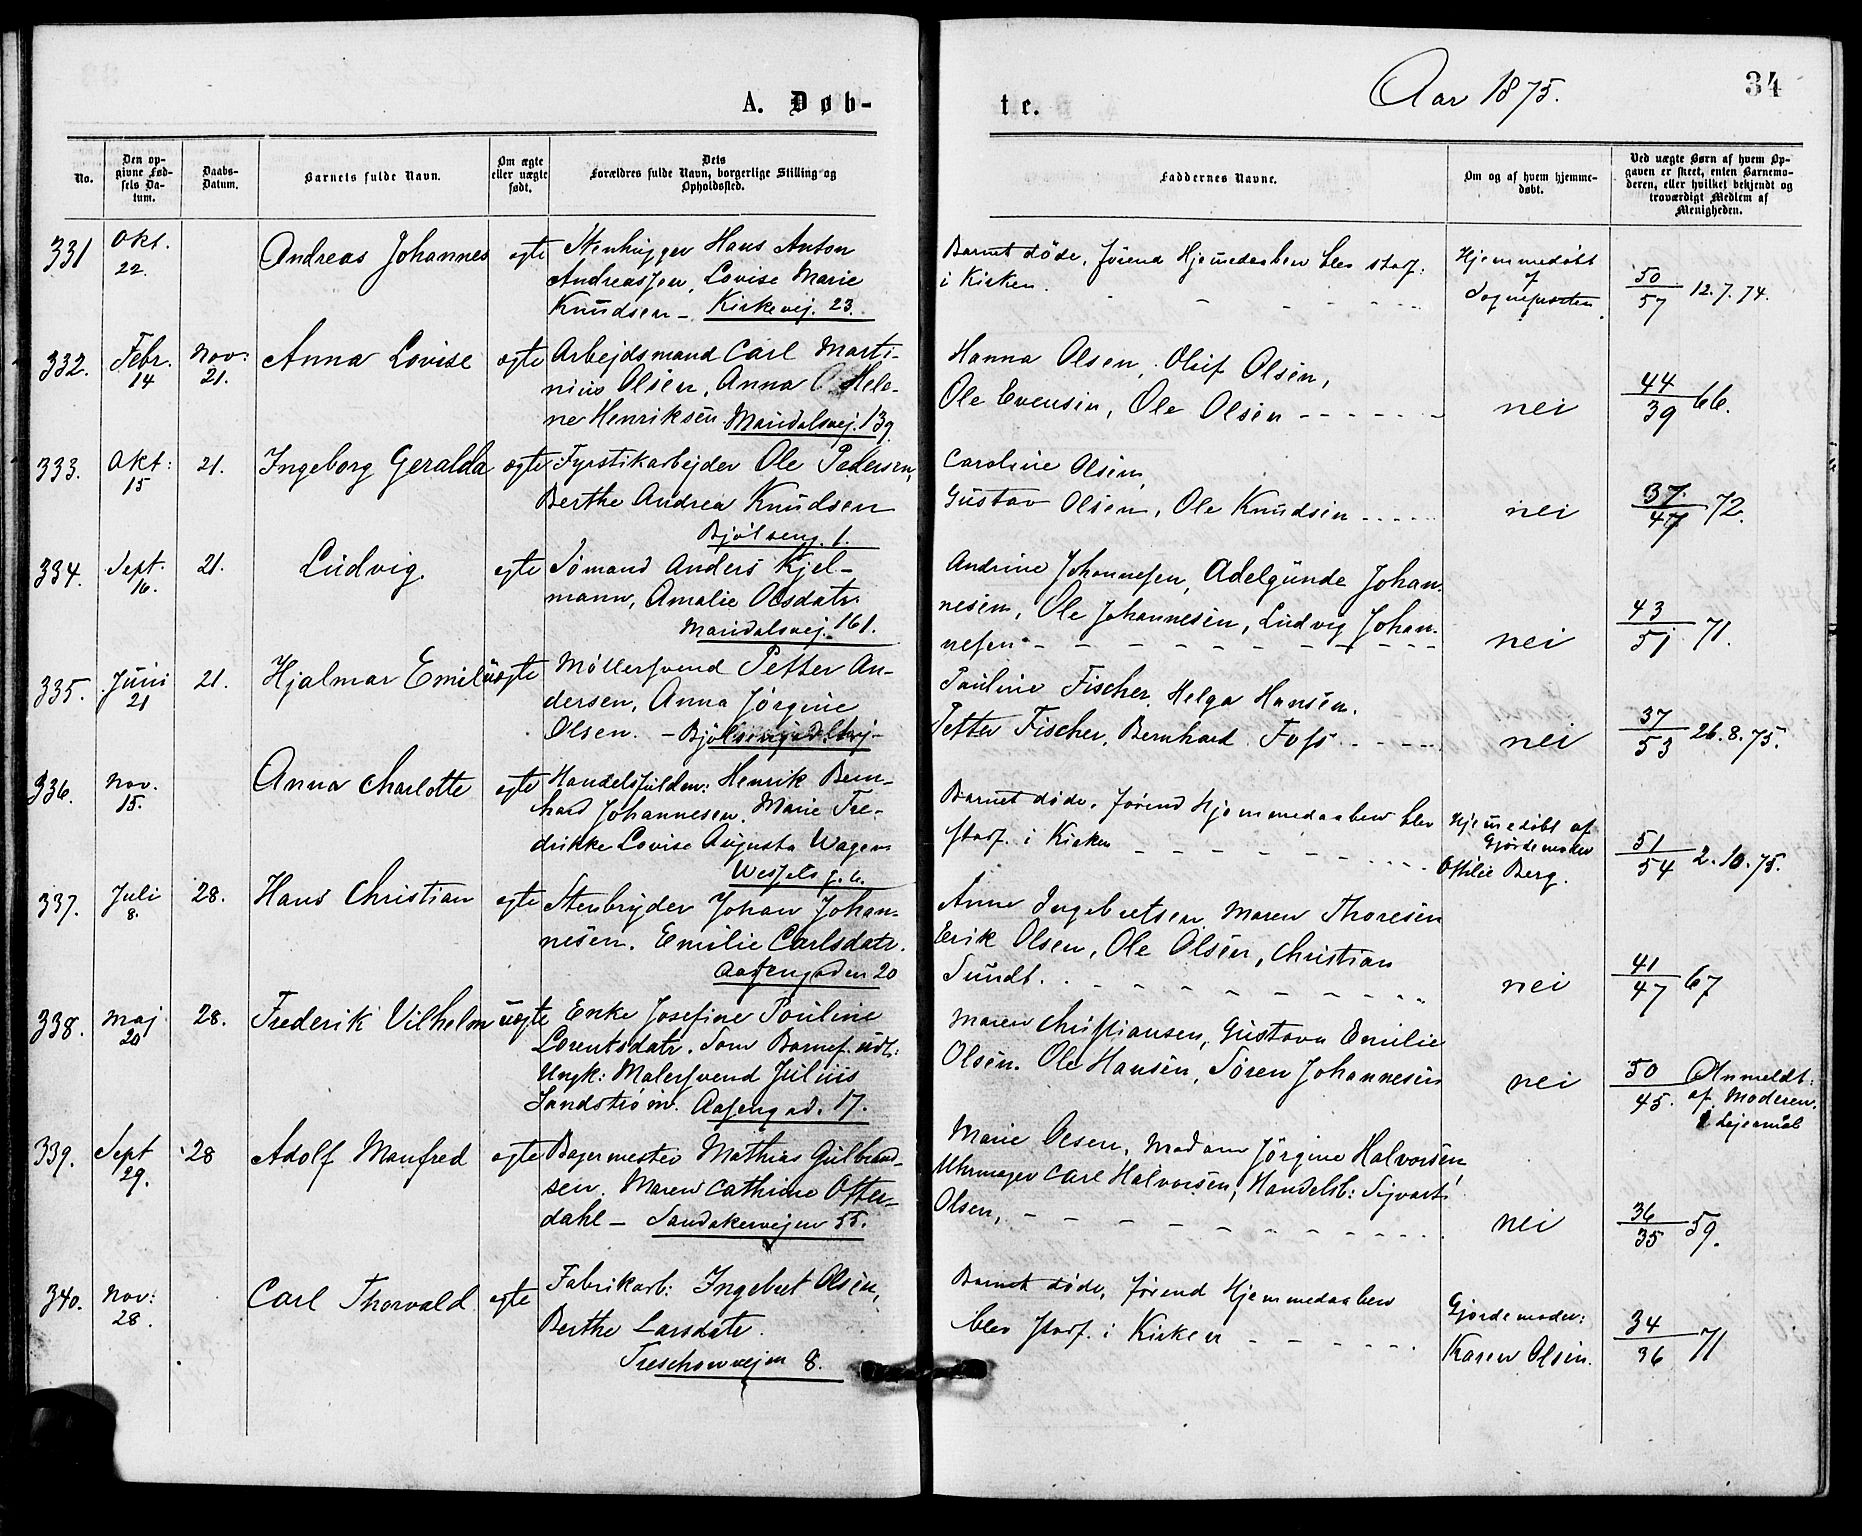 A. Døb-
te.
Aar 1875.
34
No.
Den op-
givne Fød-
sels Da-
tum.
Daabs-
Datum.
Barnets fulde Navn.
Om ægte
eller uægte
født.
Dets
Forældres fulde Navn, borgerlige Stilling og
Opholdssted.
Faddernes Navne.
Om og af hvem hjemme-
døbt.
Ved uægte Børn af hvem Op-
gaven er skeet, enten Barnemo-
deren, eller hvilket bekjendt og
troværdigt Medlem af
Menigheden.
331
Okt.
22.
Andreas Johannes
egte
Stenhugger Hans Anton
Andreassen, Lovise Marie
Knudsen - Kirkevej. 23.
Barnet døde, førend Hjemedaaben blev stadf:
i Kirken.
Hjemmedøbt
af
Sognepresten
50/57 12.7.74.
332.
Febr.
14
Nov:
21.
Anna Lovise
egte
Arbejdsmand Carl Marti-
nius Olsen, Anna C Hele-
ne Henriksen Maridalsvej. 139
Hanna Olsen, Oluf Olsen,
Ole Evensen, Ole Olsen
nei
44/39 66.
333.
Okt:
15
21.
Ingeborg Geralda
egte
Fyrstikarbejder Ole Pedersen,
Berthe Andrea Knudsen
Bjølseng. 1.
Caroline Olsen,
Gustav Olsen, Ole Knudsen
nei
37/47 72.
334.
Sept.
16.
21.
Ludvig
egte
Sømand Anders Kjel-
mann, Amalie Olsdatr.
Maridalsvej. 161.
Andrine Johannesen, Adelgunde Johan-
nesen, Ole Johannesen, Ludvig Johan-
nesen
nei
43/51 71.
335.
Juni
21
21.
Hjalmar Emil
uegte
Møllersvend Petter An-
dersen, Anna Jørgine
Olsen. -
Pauline Fischer, Helga Hansen.
Petter Fischer, Bernhard Foss
nei
37/53 26.8.75.
336.
Nov.
15.
Anna Charlotte
egte
Handelsfuldm: Henrik Bern-
hard Johannesen, Marie Fre-
drikke Lovise Augusta Wagen
Wessels g. 6.
Barnet døde, førend Hjemmedaaben blev
stadf. i Kirken
Hjemedøbt af
Gjordemoder
Ottilie Berg.
51/54 2.10.75.
337.
Juli
8.
28.
Hans Christian
egte
Stenbryder Johan Johan-
nesen. Emilie Carlsdatr.
Aasengaden 20
Anne Ingebretsen, Maren Thoresen
Erik Olsen, Ole Olsen, Christian
Sundt.
nei
41/47 67
338.
Maj
20
28.
Frederik Vilhelm
uegte
Enke Josefine Pauline
Lorentsdatr. Som Barnef. udl:
Ungk: Malersvend Julius
Sandstrøm. Aasengad. 17.
Maren Christiansen, Gustava Emilie
Olsen. Ole Hansen, Søren Johannesen
nei
50/45. Anmeldt:
af Moderen.
Lejermaal
339.
Sept
29.
28
Adolf Manfred
egte
Bagermester Mathias Gulbrand-
sen. Maren Cathrine Otter-
dahl - Sandakerveien 55.
Marie Olsen, Madam Jørgine Halvorsen
Uhrmager Carl Halvorsen, Handelsb: Sigvart
Olsen,
nei
36/35 59.
340.
Nov:
28.
Carl Thorvald
egte
Fabrikarb: Ingebret Olsen,
Berthe Larsdatr.
Treschowvejen 8.
Barnet døde, førend Hjemmedaaben
blev stadf. i Kirken
Gjordemoder:
Karen Olsen.
34/36 71